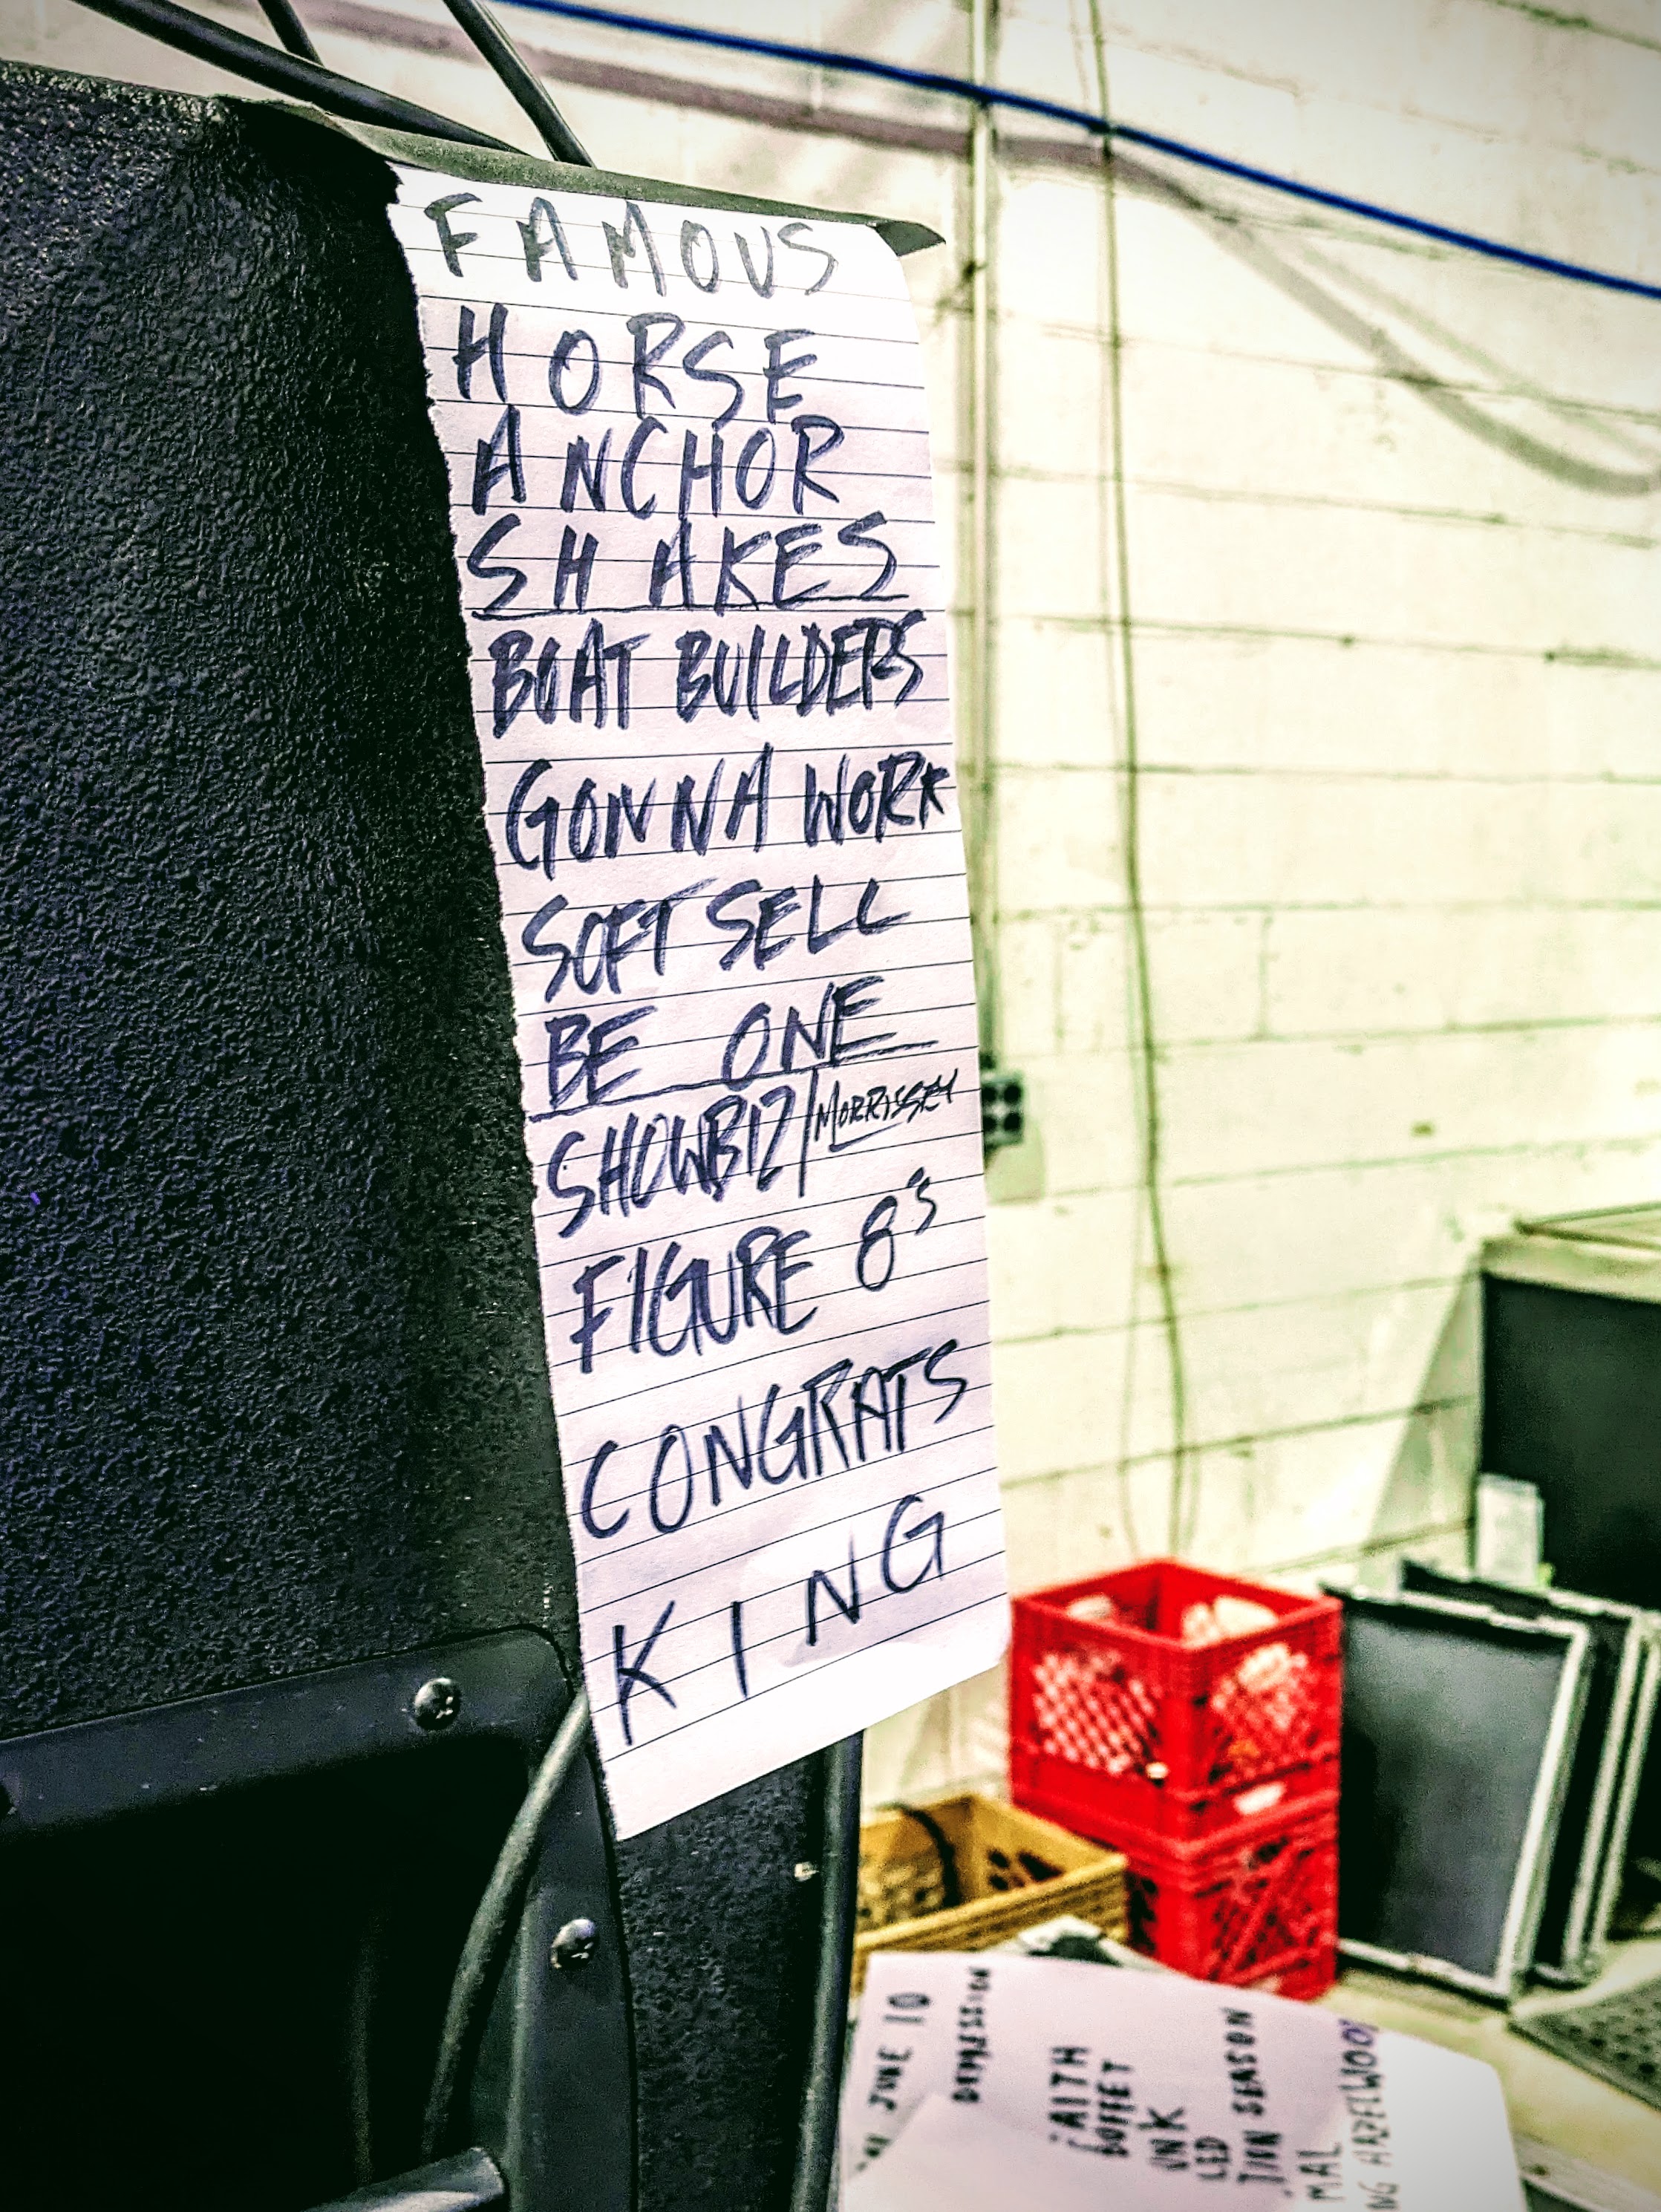 FAMOUS
HORSE
ANCHOR
SHAKES
BOAT BUILDERS
GONNA WORK
SOFT SELL
BE ONE
SHOWBIZ/MORRISSEY
FIGURE 8'S
CONGRATS
KING
JUNE 10
DEPRESSION
SEASON